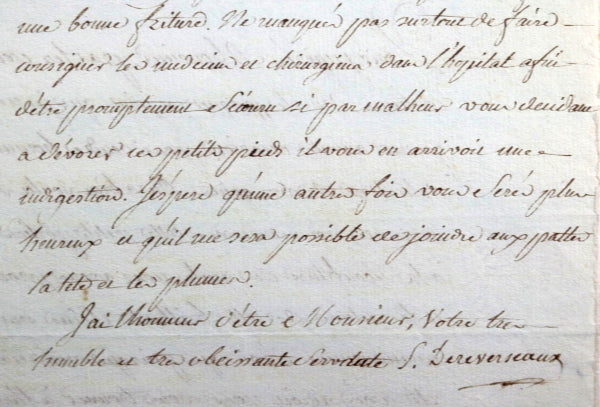 une bonne friture. Ne manqués pas surtout de faire
consigner les medecins et chirurgiens dans l'hopital afin
d'être promptement Secouru si par malheur vous decidant
a dévorer ces petits pieds il vous en arrivoit une
indigestion. J'espere qu'une autre fois vous Seré plus
heureux et qu'il me sera possible de joindre aux pattes
la tête et les plumes.
J'ai l'honneur d'être Monsieur, Votre tres
humble et tres obeissante Servante S. Dereverseaux